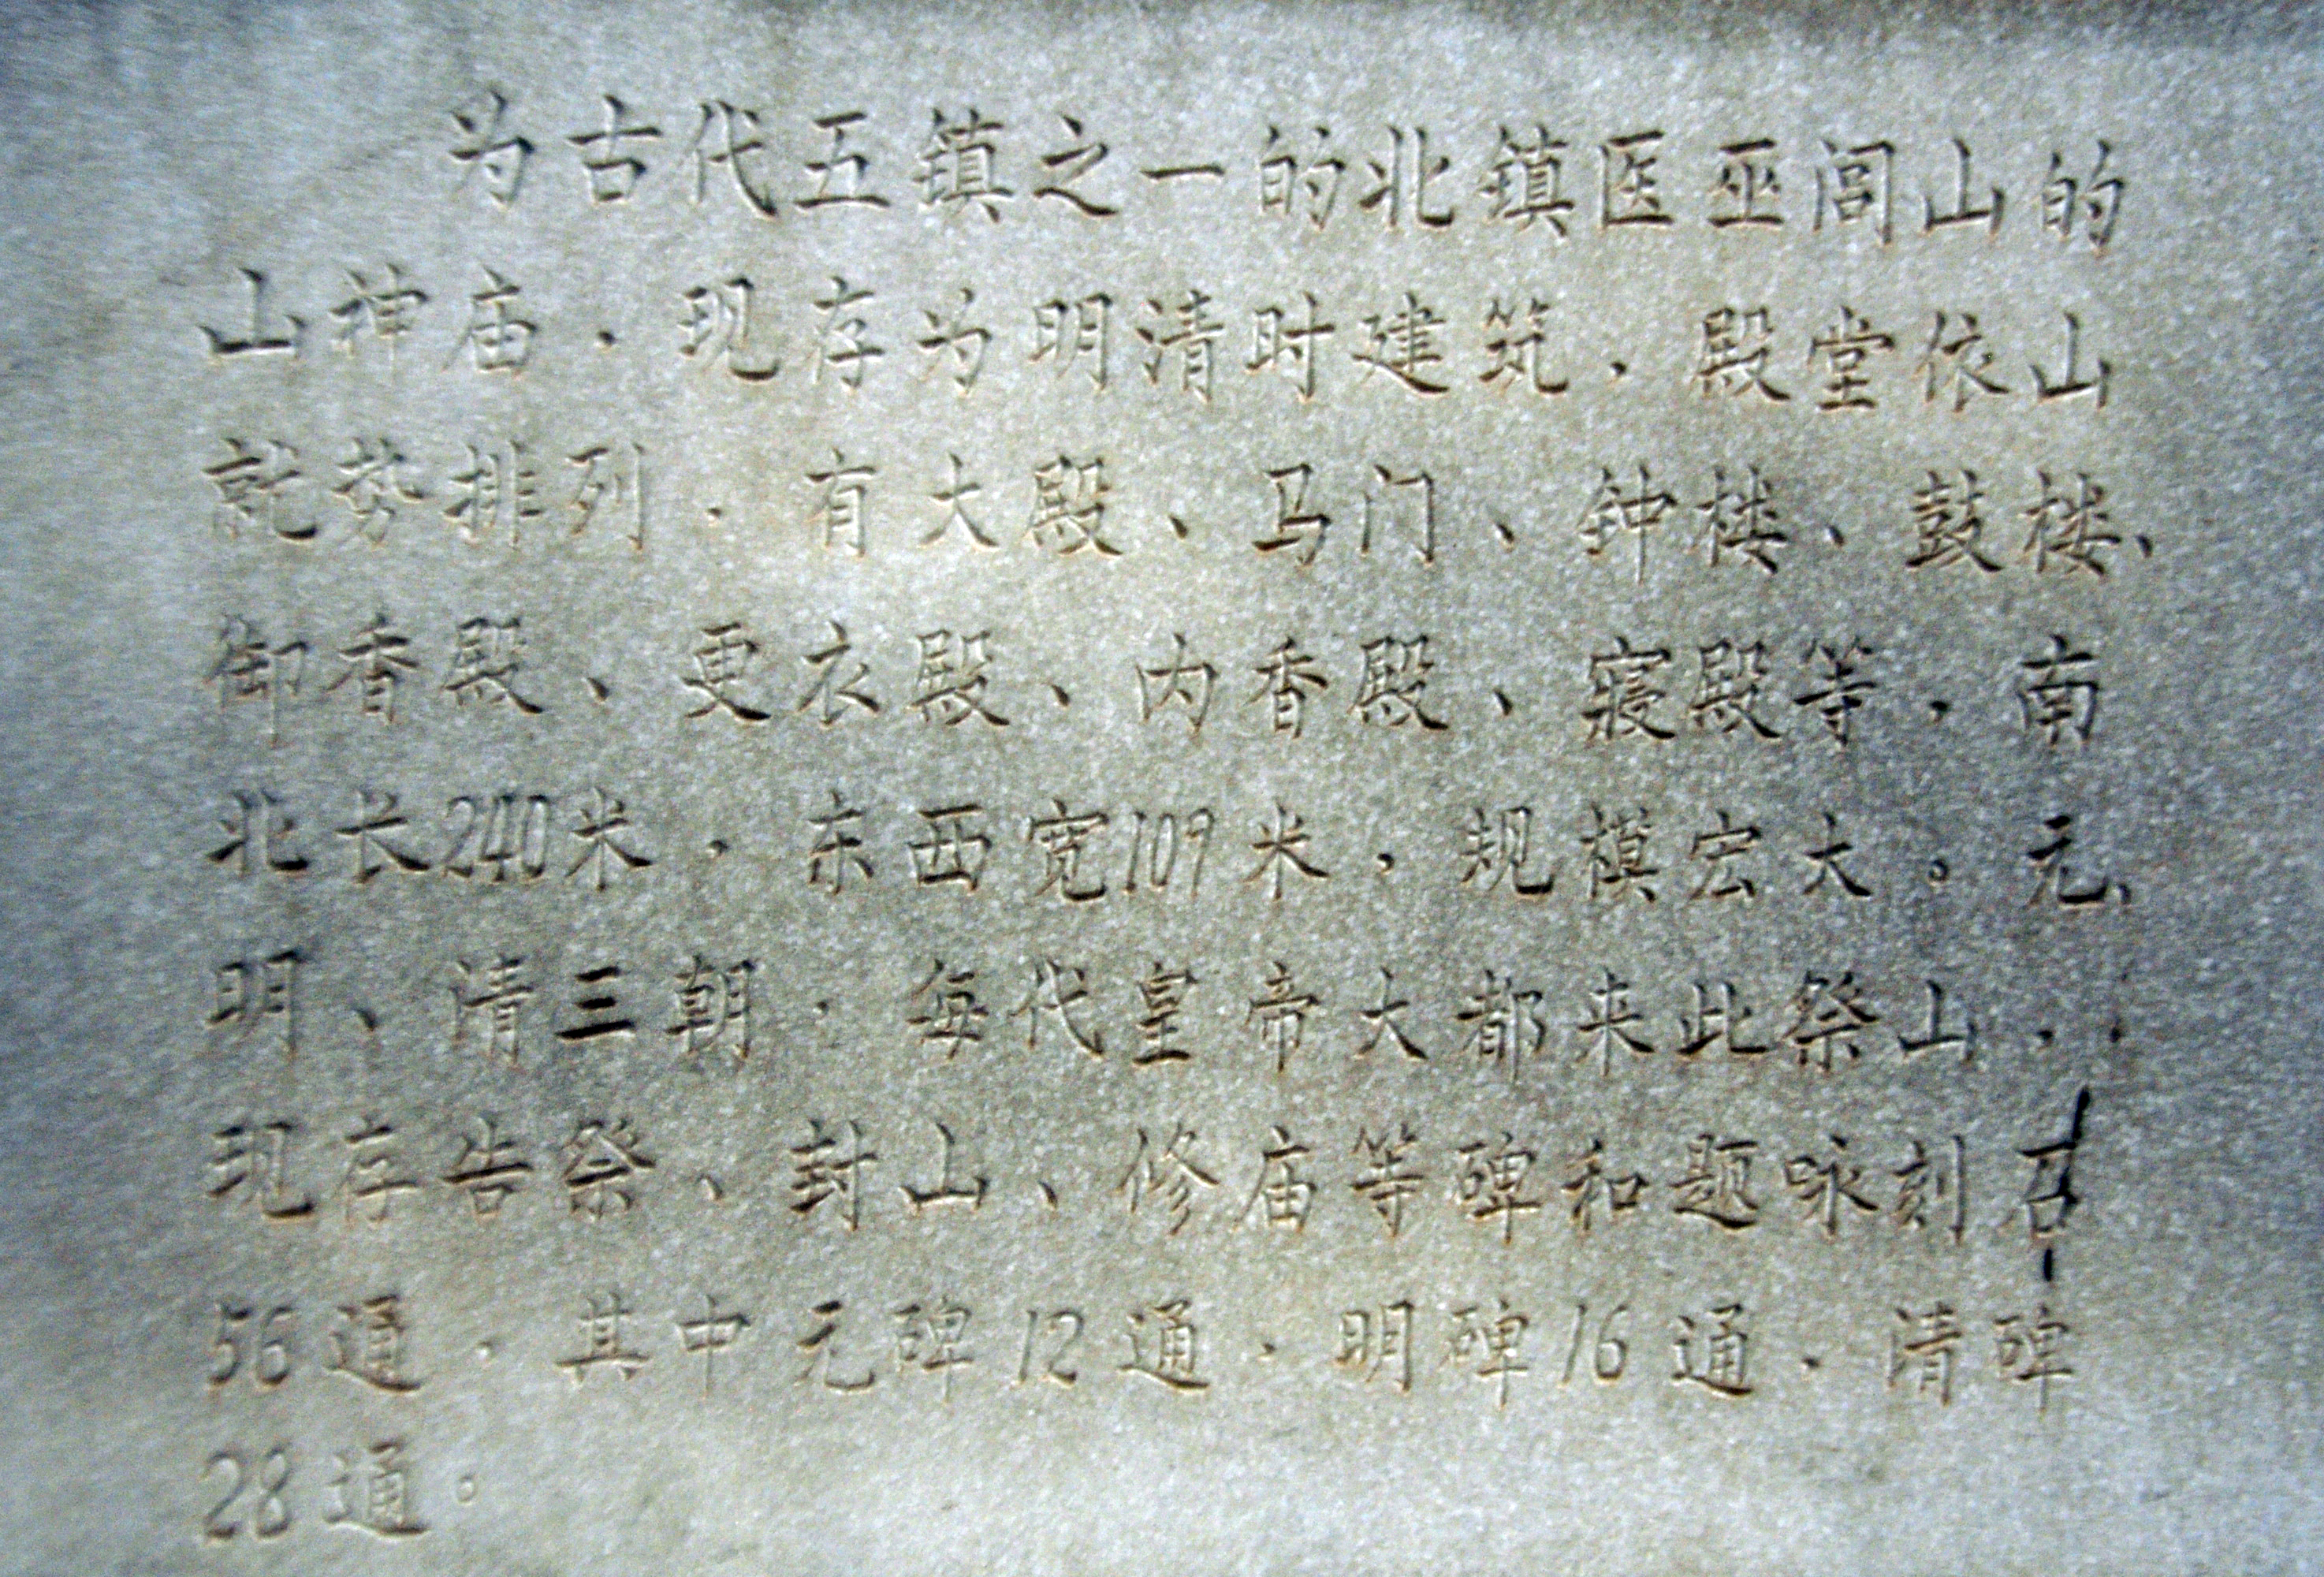 为古代五镇之一的北镇医巫闾山的
山神庙，现存为明清时建筑，殿堂依山
就势排列，有大殿、马门、钟楼、鼓楼、
御香殿、更衣殿、内香殿、寝殿等，南
北长240米，东西宽109米，规模宏大。元、
明、清三朝，每代皇帝大都来此祭山，
现存告祭、封山、修庙等碑和题咏刻石
56通，其中元碑12通，明碑16通，清碑
28通。